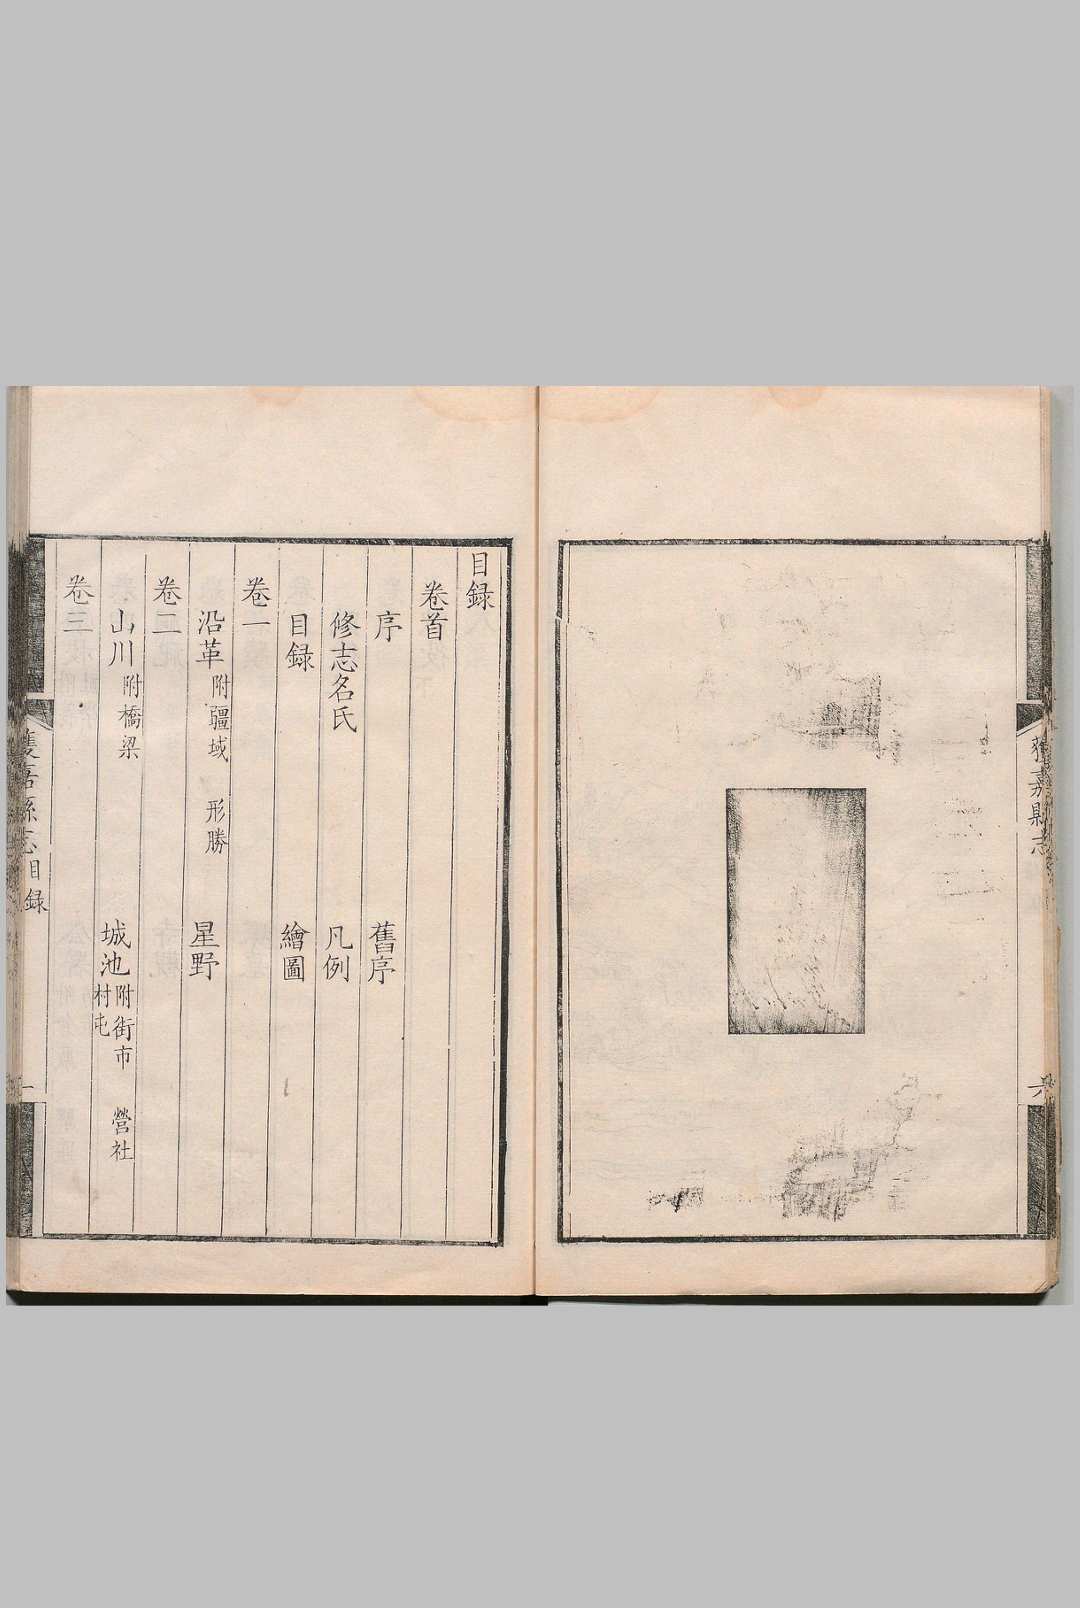 獲嘉縣志
六
目録
卷首
序 舊序
修志名氏 凡例
目録 繪圖
卷一
沿革 附疆域 形勝 星野
卷二
山川 附橋梁 城池 附街市 營社 村屯
卷三
獲嘉縣志 目録
一